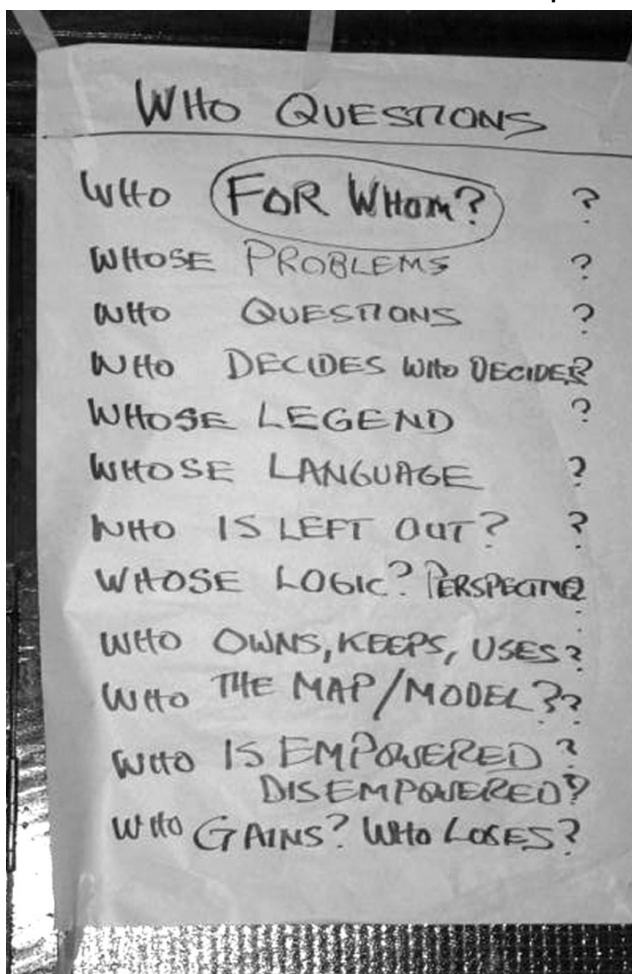 WHO QUESTIONS
WHO FOR WHOM? ?
WHOSE PROBLEMS ?
WHO QUESTIONS ?
WHO DECIDES WHO DECIDES?
WHOSE LEGEND ?
WHOSE LANGUAGE ?
WHO IS LEFT OUT? ?
WHOSE LOGIC? PERSPECTIVE?
WHO OWNS, KEEPS, USES?
WHO THE MAP/MODEL??
WHO IS EMPOWERED ?
DISEMPOWERED?
WHO GAINS? WHO LOSES?